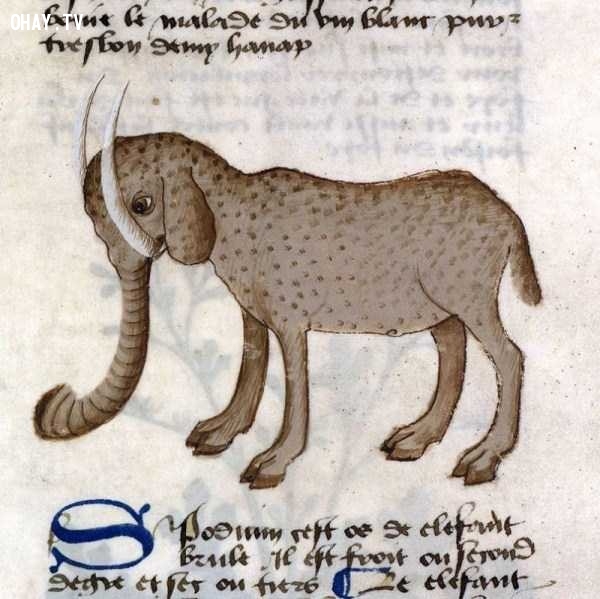 OHAY.TV
le malade du vin blanc pur
tresbon demy hanap
Spodium cest os de elefant
brule. Il est froit ou second
degre et sec ou tiers Le elefant